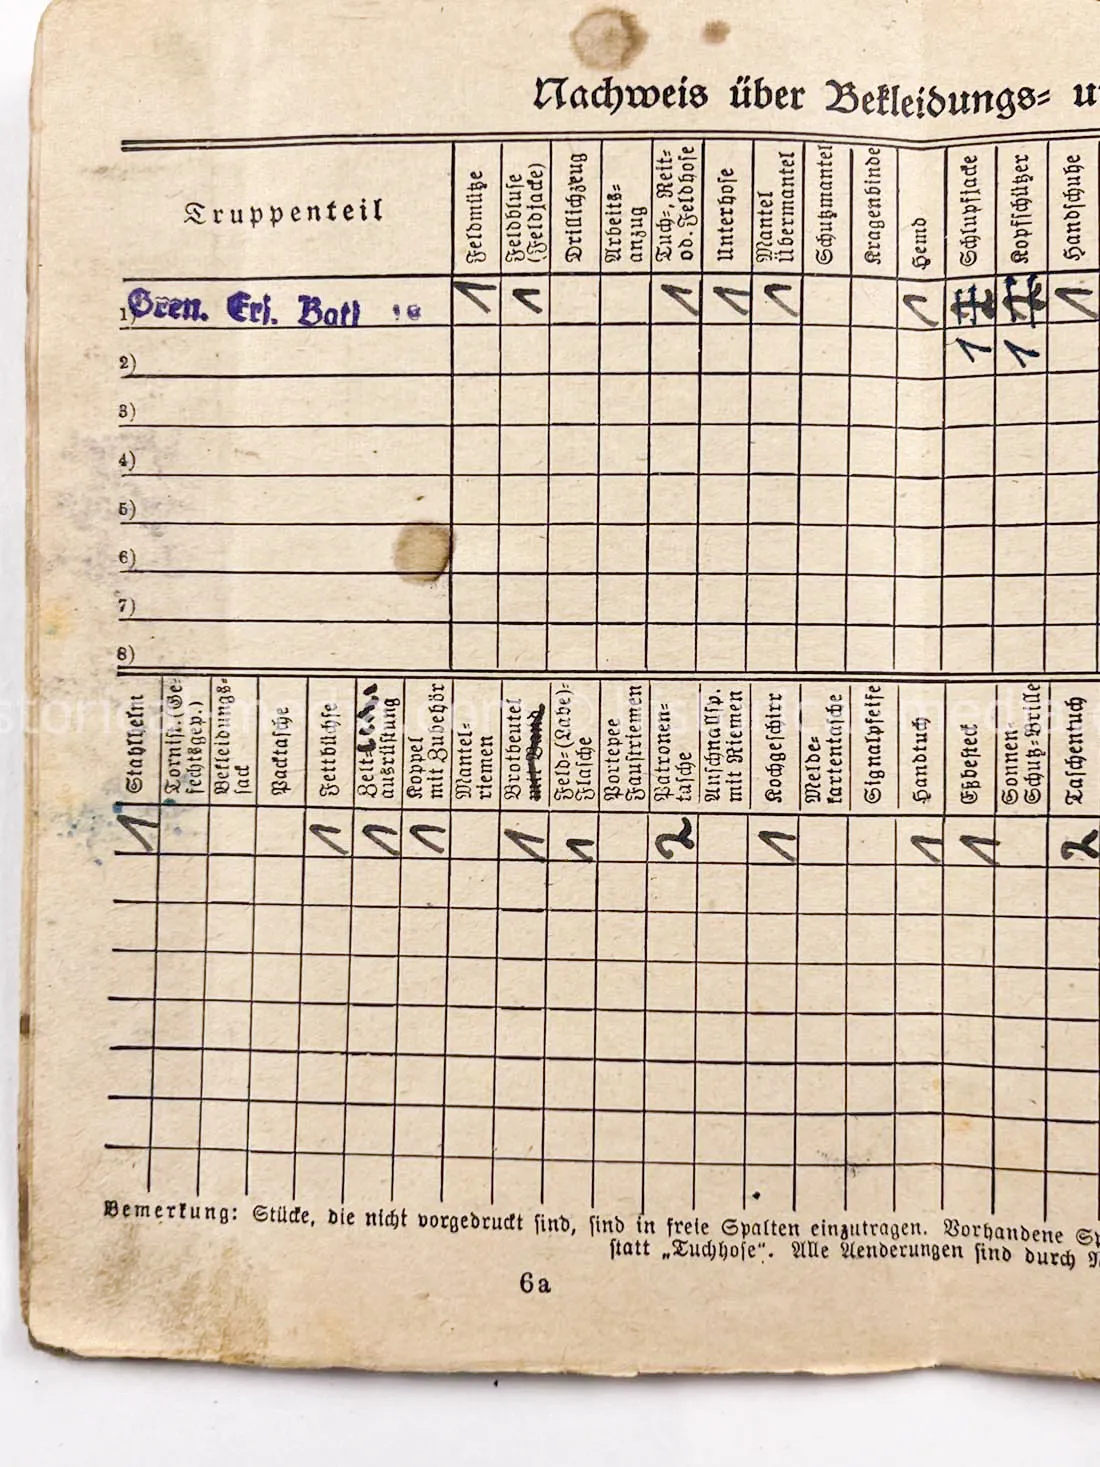 Nachweis über Bekleidungs- u
Truppenteil
Feldmütze
Feldbluse (Feldjacke)
Drillichzeug
Arbeits- anzug
Tuch-, Reit- od. Feldhose
Unterhose
Mantel Übermantel
Schutzmantel
Kragenbinde
Hemd
Schlupfjacke
Kopfschützer
Handschuhe
1) Gren. Ers. Batl 1 1 1 1 1 1 1
2) 1 1
3)
4)
5)
6)
7)
8)
Stahlhelm
Tornist. (Ge- fechtsgep.)
Bekleidungs- sack
Packtasche
Fettbüchse
Zelt- ausrüstung
Koppel mit Zubehör
Mantel- riemen
Brotbeutel mit Band
Feld-(Labe)- Flasche
Portepee Faustriemen
Patronen- tasche
Anschnallsp. mit Riemen
Kochgeschirr
Melde- kartentasche
Signalpfeife
Handtuch
Eßbesteck
Sonnen- Schutz-Brille
Taschentuch
1 1 1 1 1 1 2 1 1 1 2
Bemerkung: Stücke, die nicht vorgedruckt sind, sind in freie Spalten einzutragen. Vorhandene Sp
statt „Tuchhose“. Alle Aenderungen sind durch
6a